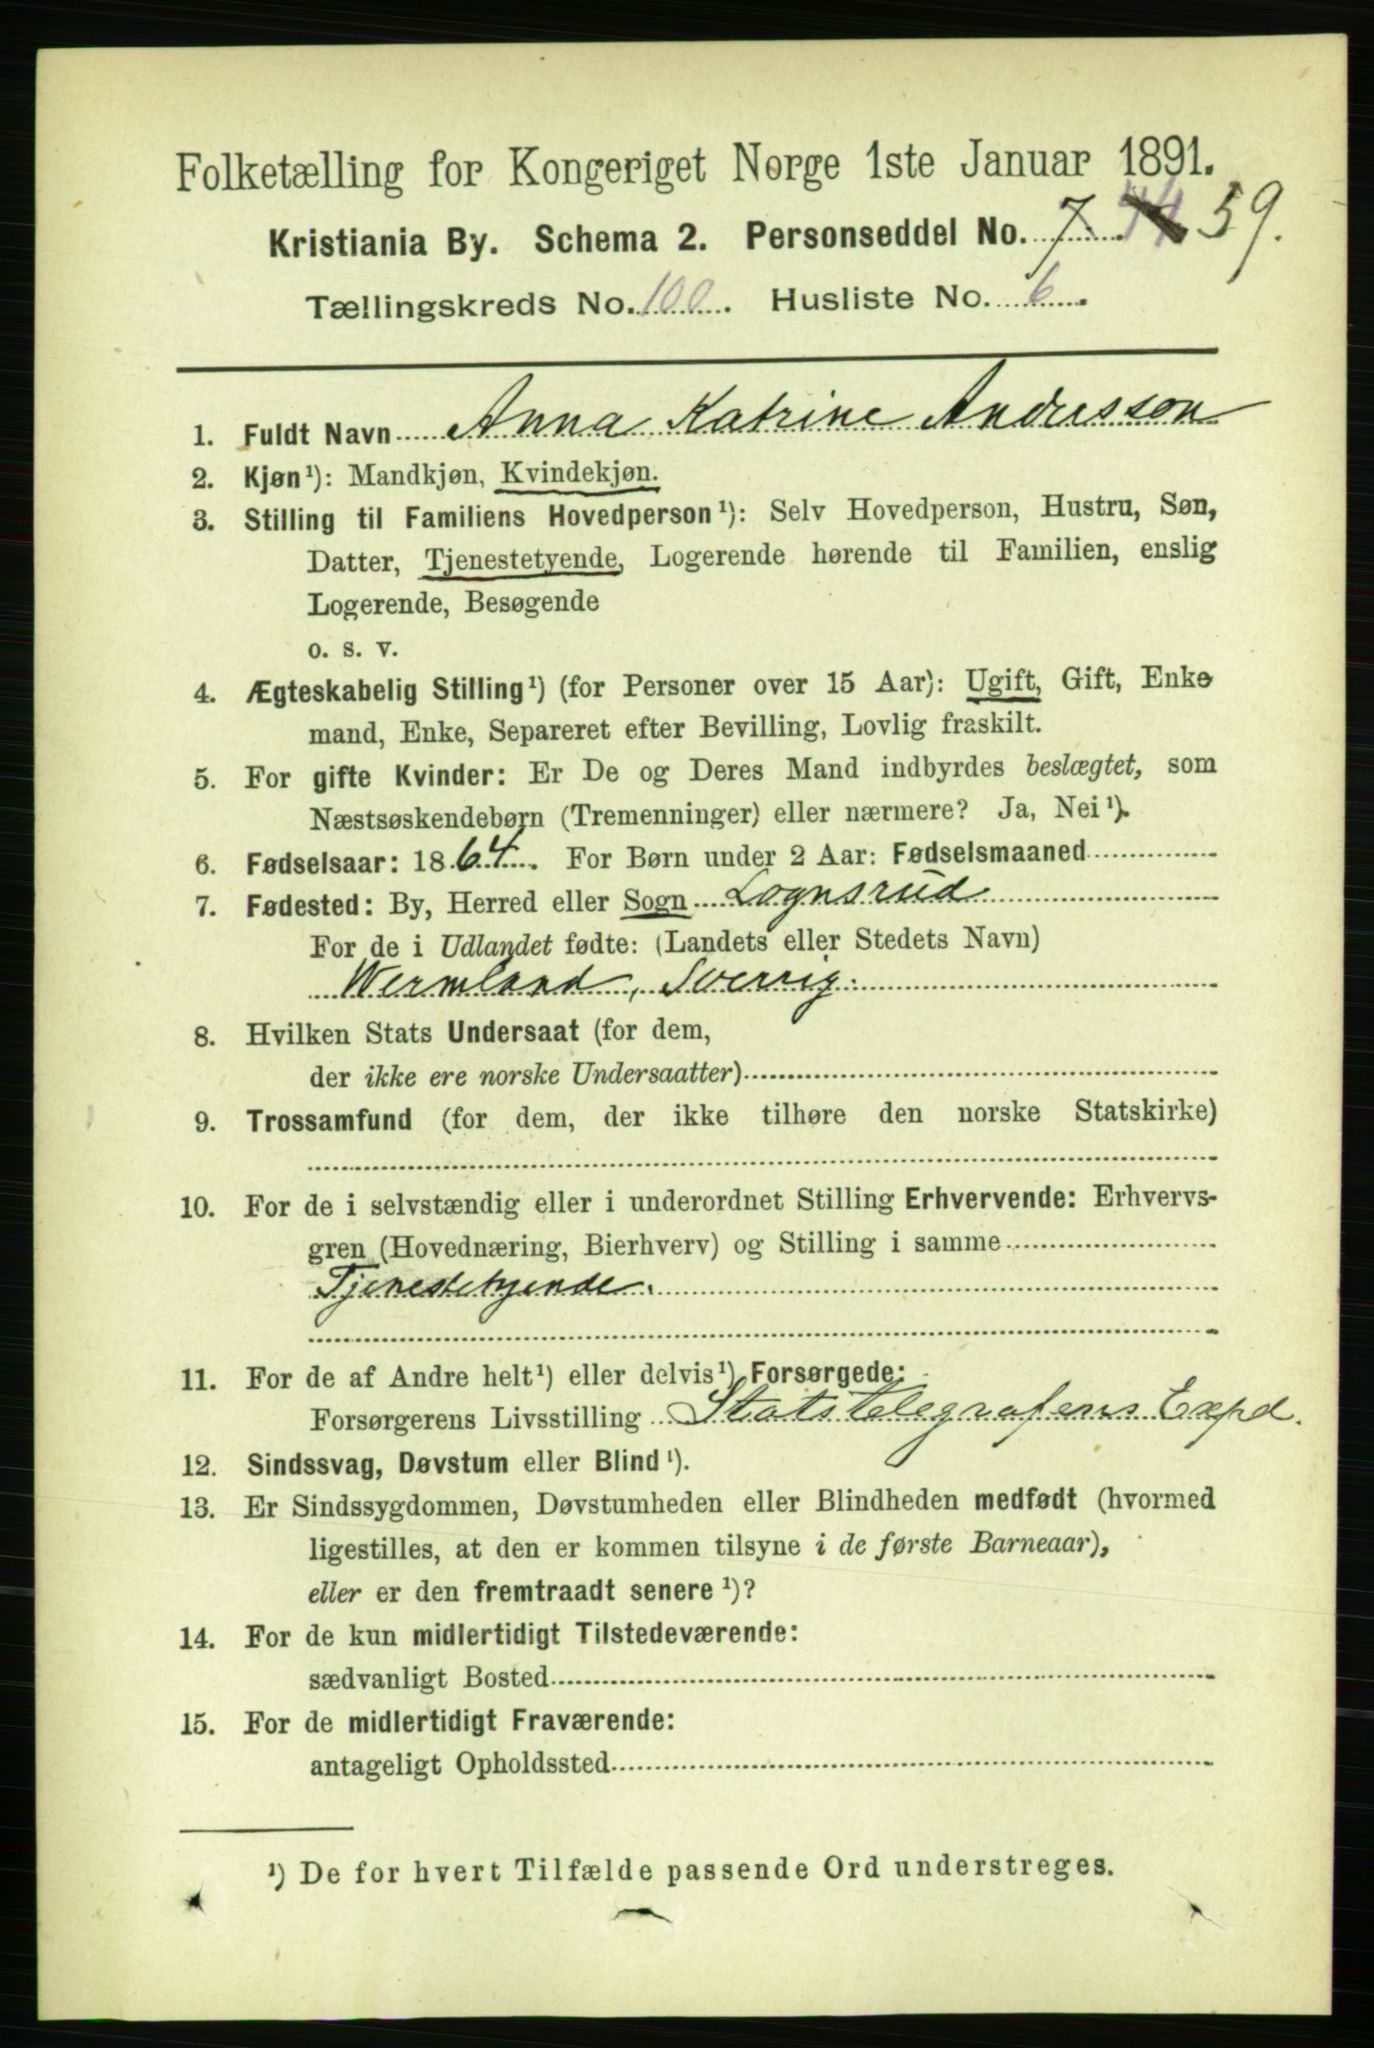 Folketælling for Kongeriget Norge 1ste Januar 1891.
Kristiania By. Schema 2. Personseddel No. 7 59.
Tællingskreds No. 100. Husliste No. 6.
1. Fuldt Navn Anna Katrine Andresson
2. Kjøn¹): Mandkjøn, Kvindekjøn.
3. Stilling til Familiens Hovedperson¹): Selv Hovedperson, Hustru, Søn,
Datter, Tjenestetyende, Logerende hørende til Familien, enslig
Logerende, Besøgende
o. s. v.
4. Ægteskabelig Stilling¹) (for Personer over 15 Aar): Ugift, Gift, Enke-
mand, Enke, Separeret efter Bevilling, Lovlig fraskilt.
5. For gifte Kvinder: Er De og Deres Mand indbyrdes beslægtet, som
Næstsøskendebørn (Tremenninger) eller nærmere? Ja, Nei¹).
6. Fødselsaar: 1864. For Børn under 2 Aar: Fødselsmaaned
7. Fødested: By, Herred eller Sogn Lognsrud
For de i Udlandet fødte: (Landets eller Stedets Navn)
Wermland, Sverrig.
8. Hvilken Stats Undersaat (for dem,
der ikke ere norske Undersaatter)
9. Trossamfund (for dem, der ikke tilhøre den norske Statskirke)
10. For de i selvstændig eller i underordnet Stilling Erhvervende: Erhvervs-
gren (Hovednæring, Bierhverv) og Stilling i samme
Tjenestetyende.
11. For de af Andre helt¹) eller delvis¹) Forsørgede:
Forsørgerens Livsstilling Statstelegrafens Expd.
12. Sindssvag, Døvstum eller Blind¹).
13. Er Sindssygdommen, Døvstumheden eller Blindheden medfødt (hvormed
ligestilles, at den er kommen tilsyne i de første Barneaar),
eller er den fremtraadt senere¹)?
14. For de kun midlertidigt Tilstedeværende:
sædvanligt Bosted
15. For de midlertidigt Fraværende:
antageligt Opholdssted
¹) De for hvert Tilfælde passende Ord understreges.